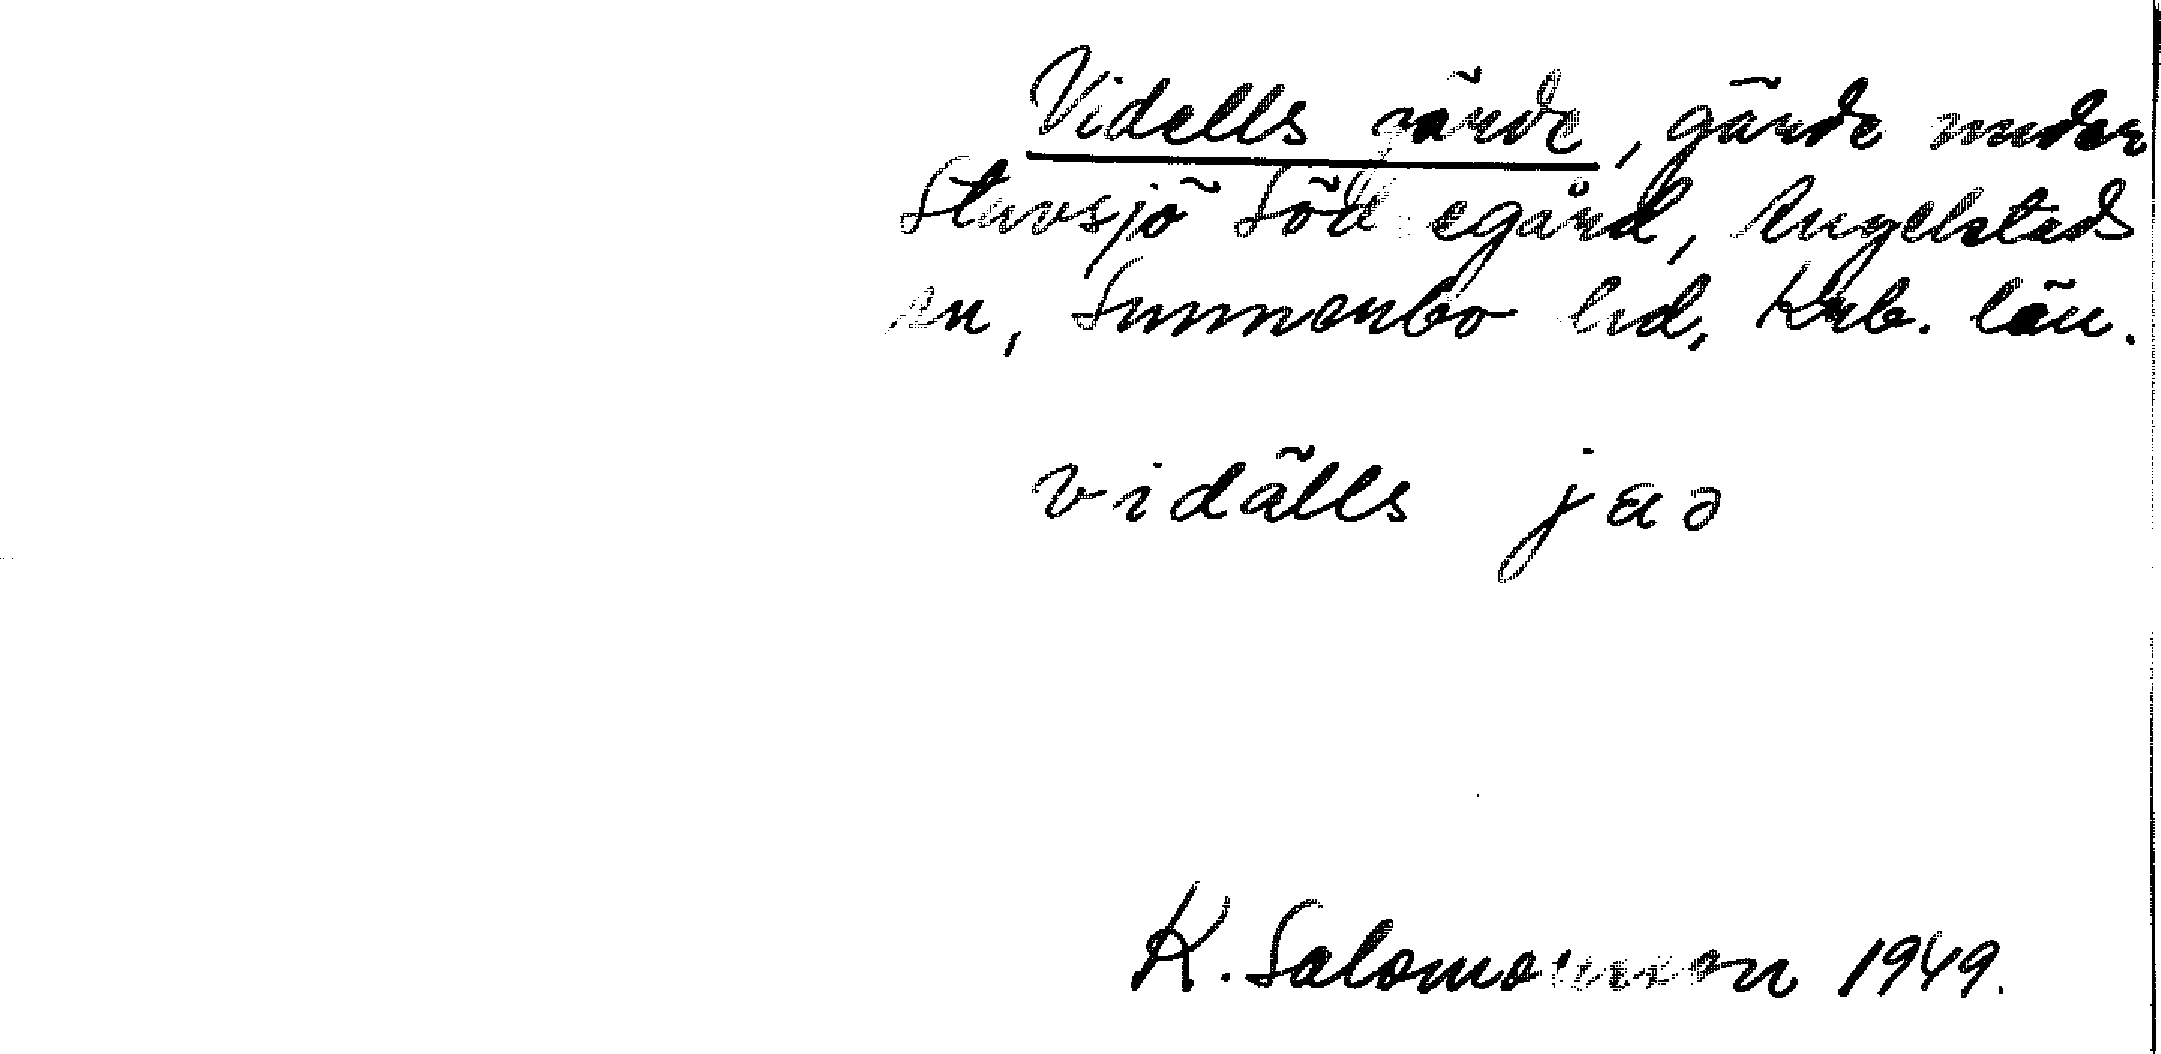 Vidells gärde, gärde under
Stavsjö Södregård, Angelstads
sn, Sunnerbo hd, Krb. län.
vidälls jæə
K. Salomonsson 1949.